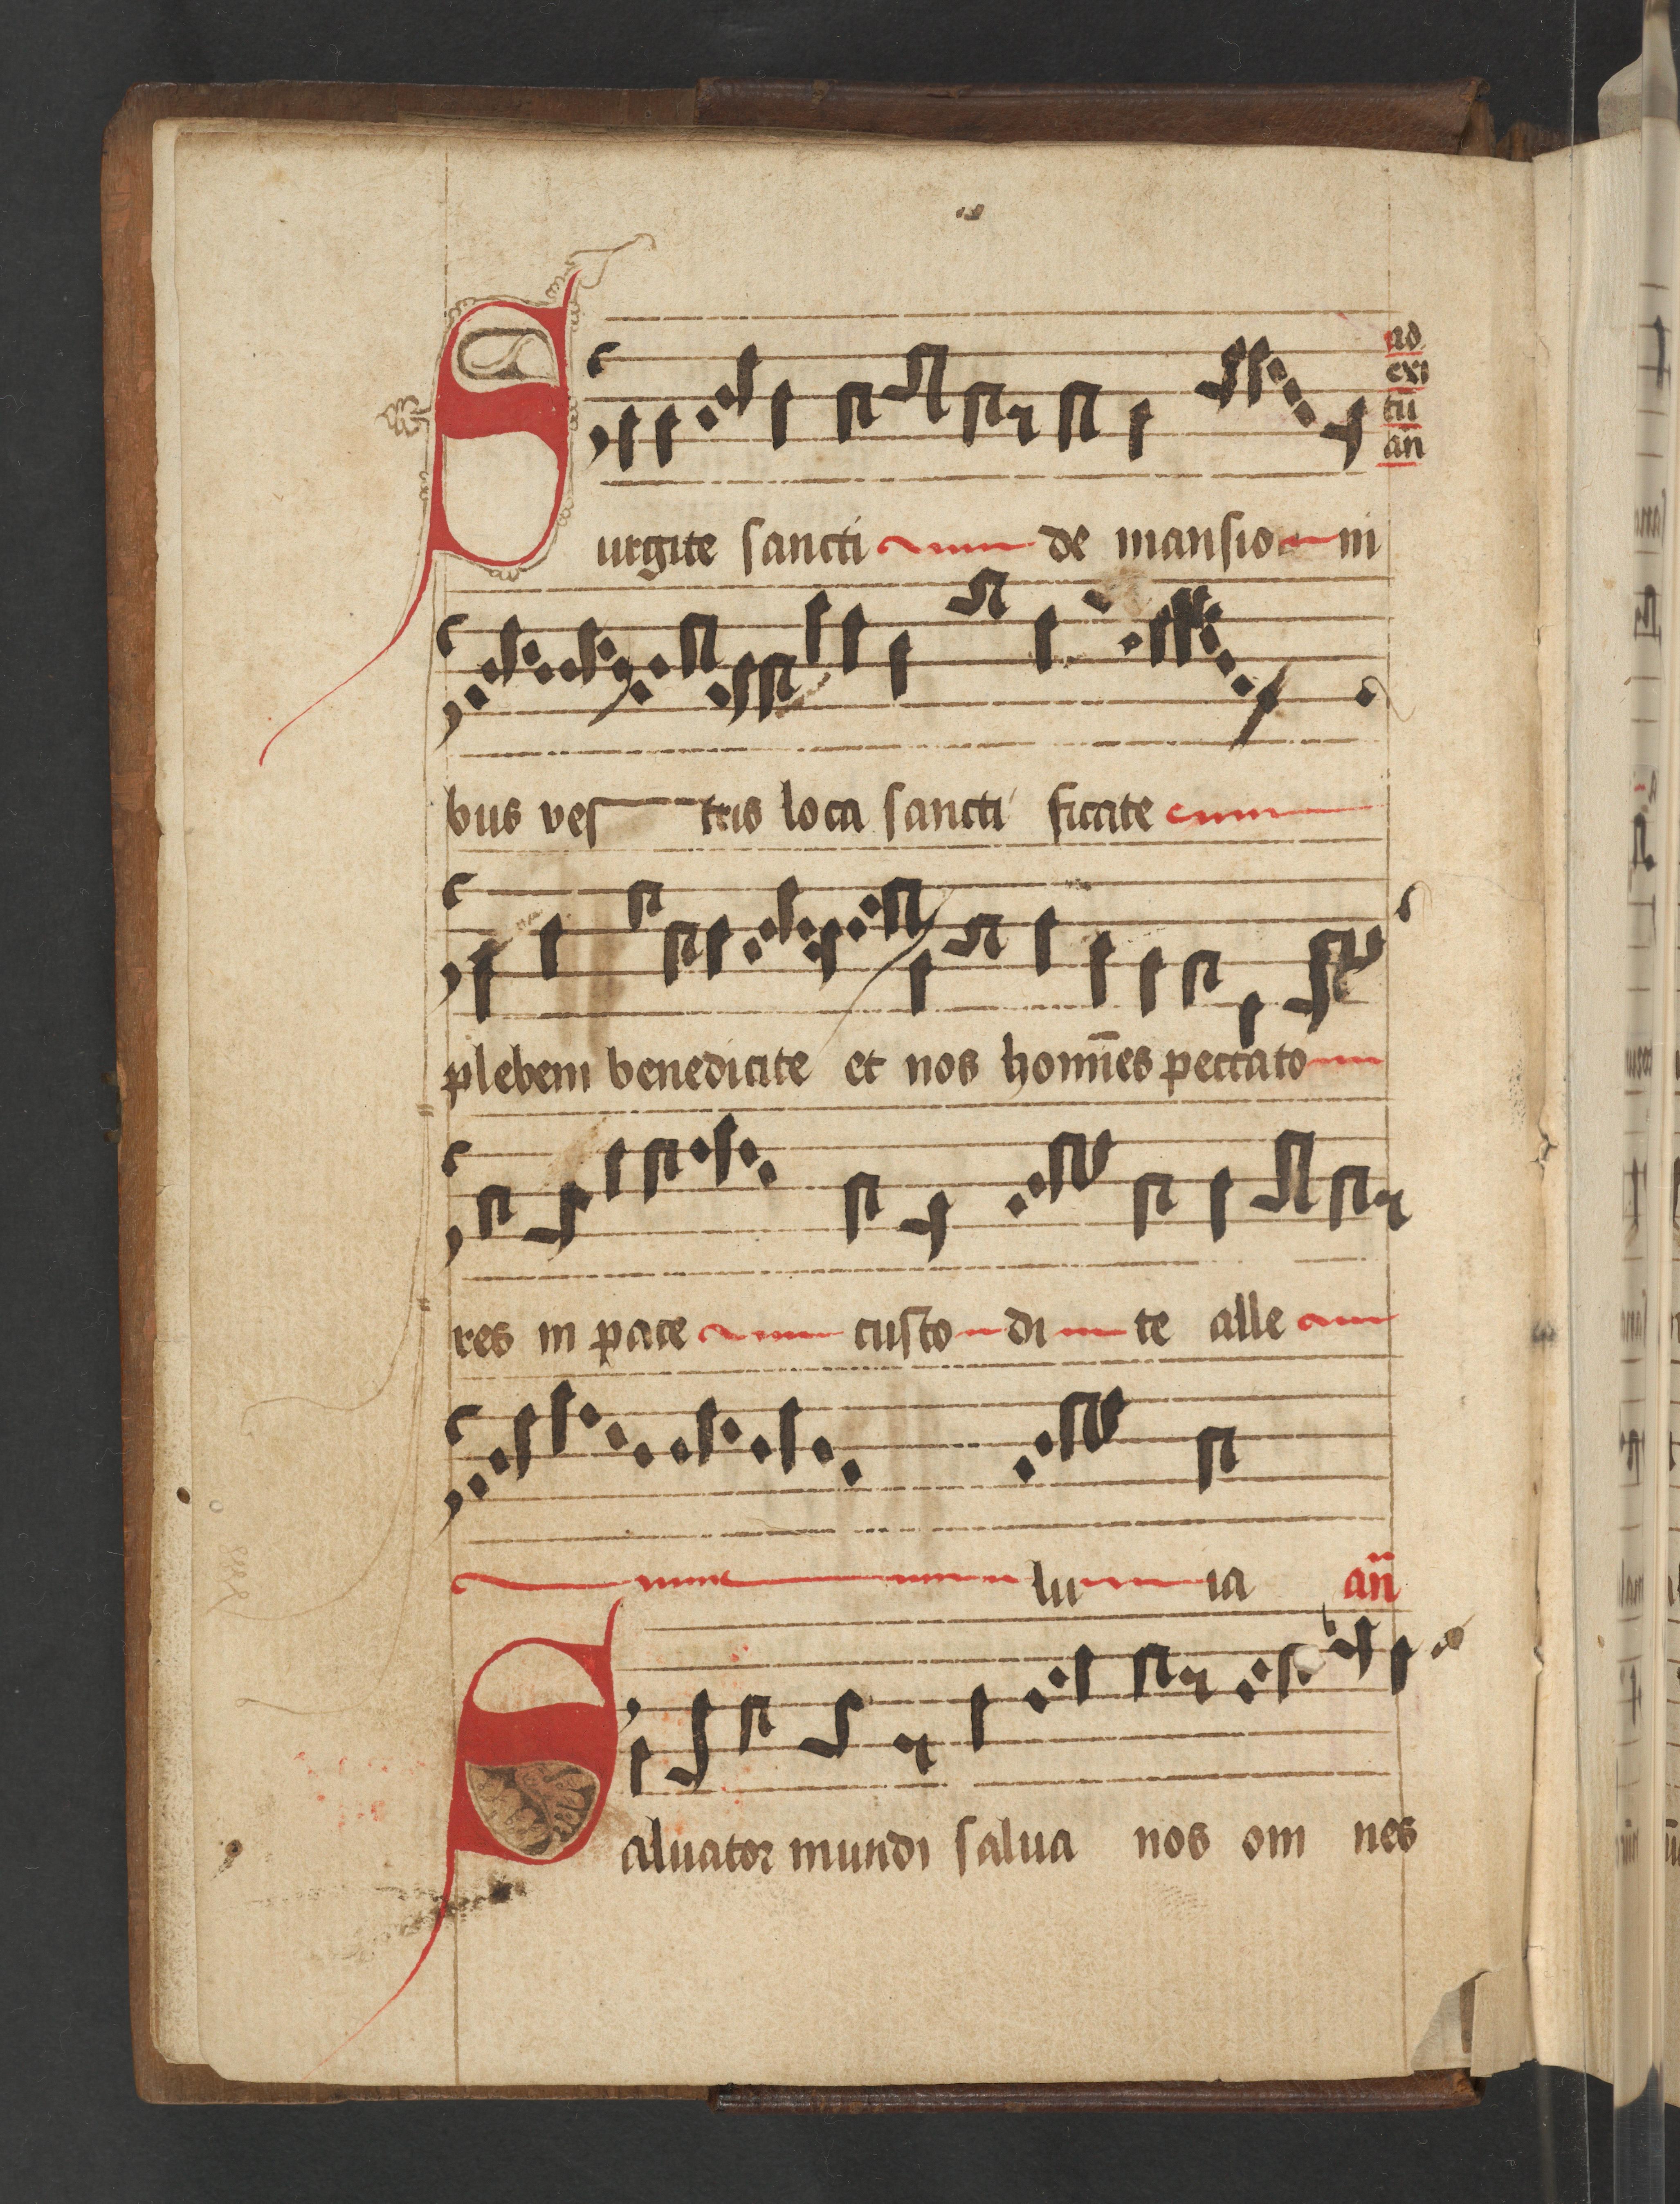 ad
exi
tū
an̄
Surgite sancti de mansio ni
bus ves tris loca sancti ficate
plebem benedicite et nos homīes peccato
res in pace custo di te alle
lu ia an̄
Saluator mundi salua nos om nes